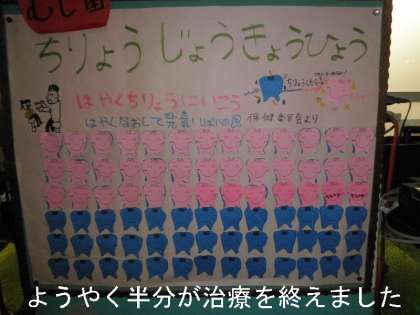 むし歯
ちりょうじょうきょうひょう
はやくちりょうにいこう
はやくなおして元気いっぱいの国
保健委員会より
ようやく半分が治療を終えました